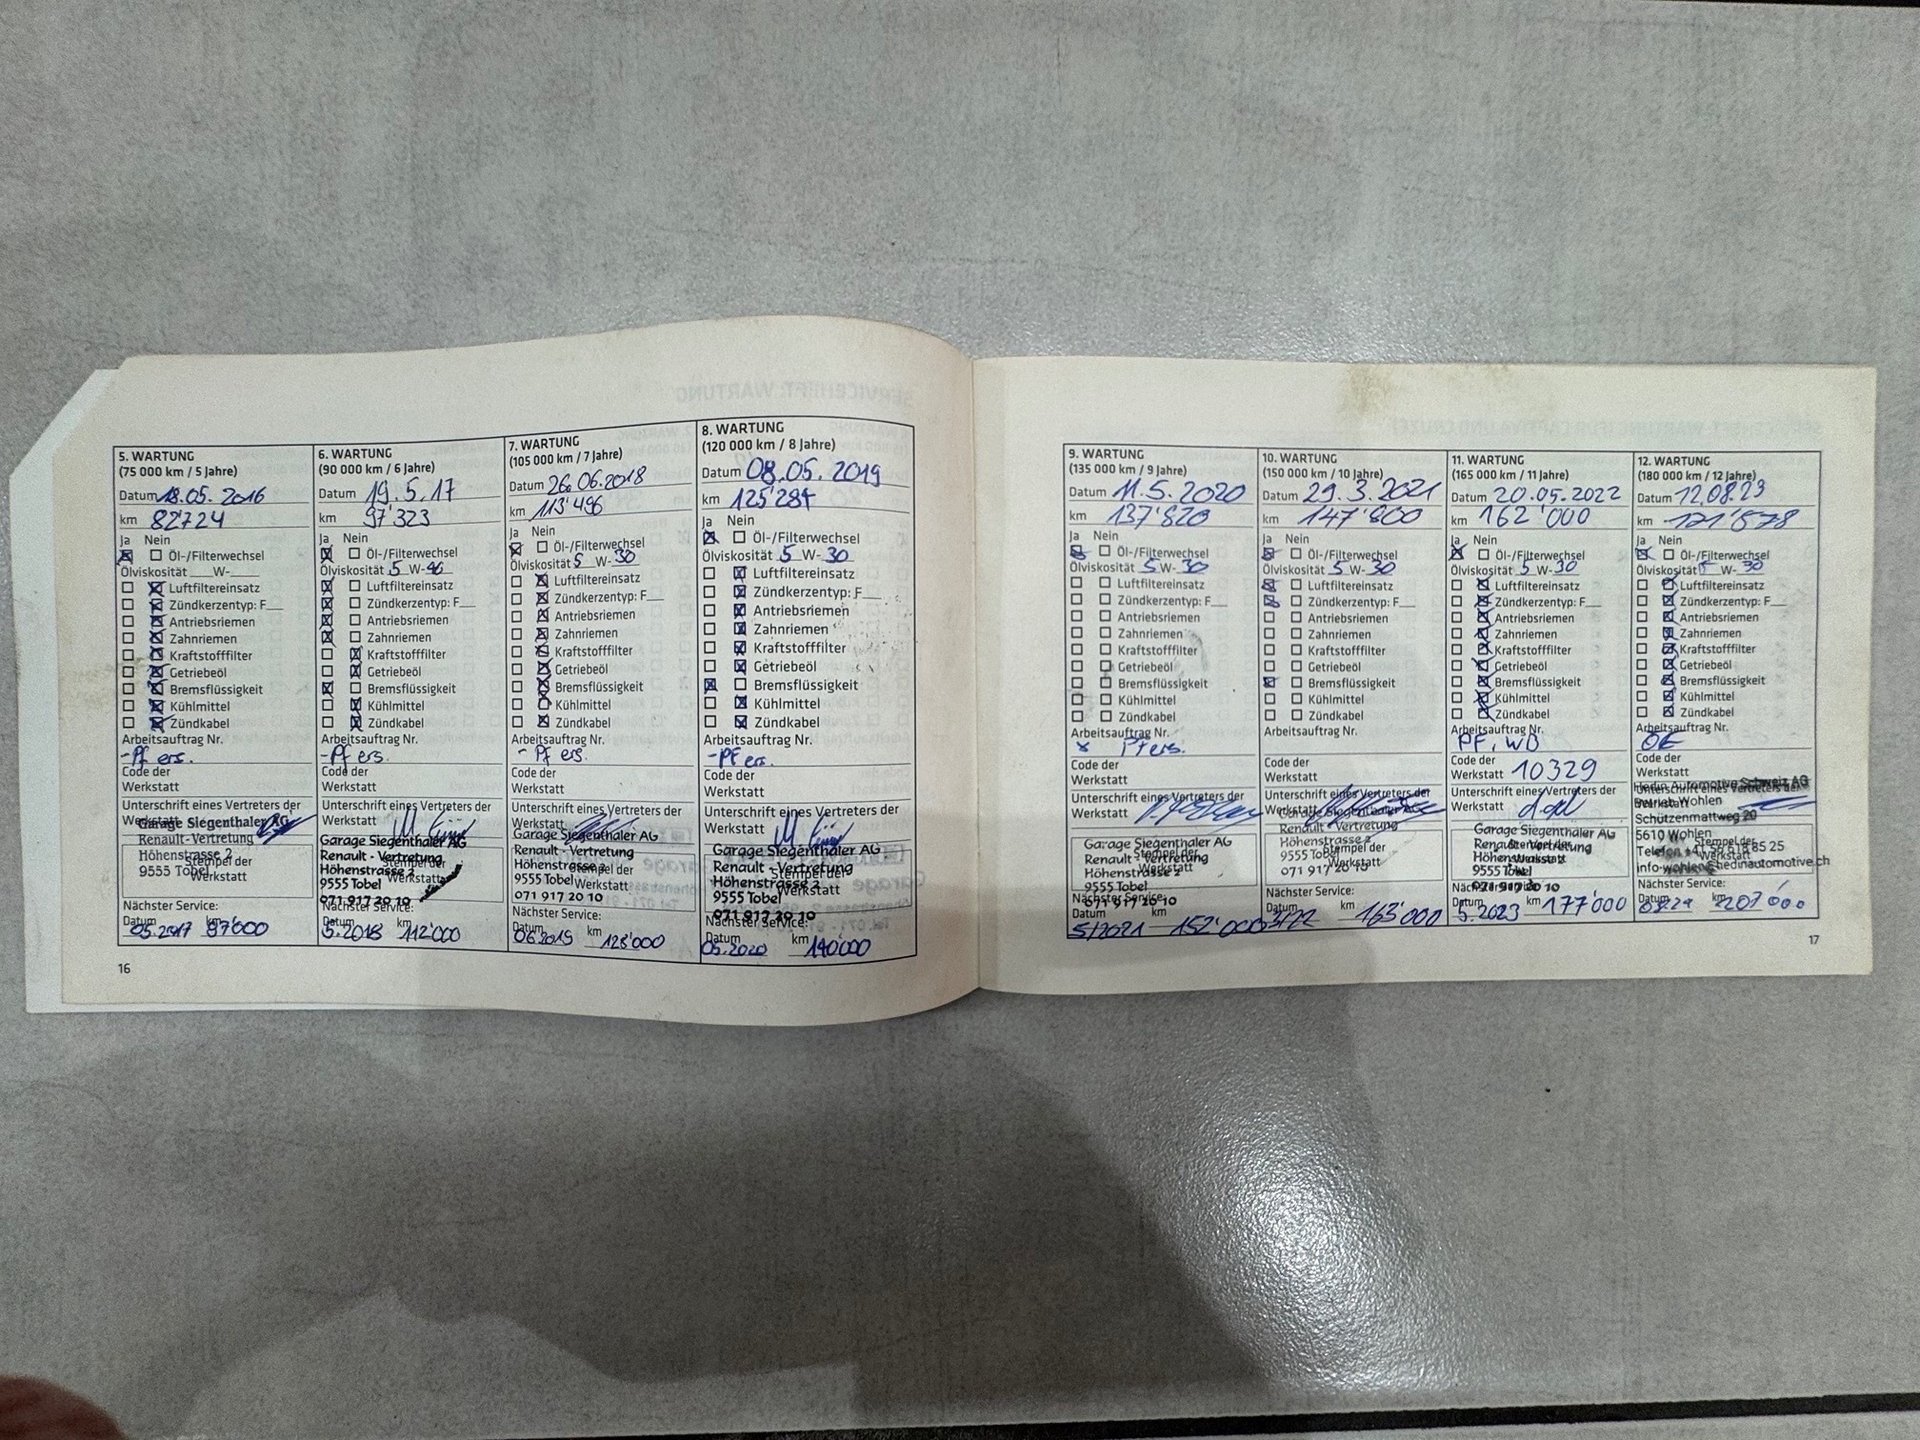 5. WARTUNG
(75 000 km / 5 Jahre)
Datum 18.05. 2016
km 82'724
Ja Nein
Öl-/Filterwechsel
Ölviskosität __W-__
Luftfiltereinsatz
Zündkerzentyp: F__
Antriebsriemen
Zahnriemen
Kraftstofffilter
Getriebeöl
Bremsflüssigkeit
Kühlmittel
Zündkabel
Arbeitsauftrag Nr.
- Pf ers.
Code der
Werkstatt
Unterschrift eines Vertreters der
Werkstatt
Garage Siegenthaler AG
Renault - Vertretung
Höhenstrasse 2
9555 Tobel
Stempel der
Werkstatt
Nächster Service:
Datum km
05.2017 97'000
6. WARTUNG
(90 000 km / 6 Jahre)
Datum 19.5.17
km 97'323
Ja Nein
Öl-/Filterwechsel
Ölviskosität 5 W-
Luftfiltereinsatz
Zündkerzentyp: F__
Antriebsriemen
Zahnriemen
Kraftstofffilter
Getriebeöl
Bremsflüssigkeit
Kühlmittel
Zündkabel
Arbeitsauftrag Nr.
- Pf ers.
Code der
Werkstatt
Unterschrift eines Vertreters der
Werkstatt
Garage Siegenthaler AG
Renault - Vertretung
Höhenstrasse 2
9555 Tobel
071 917 20 10
Stempel der
Werkstatt
Nächster Service:
Datum km
5.2018 112'000
7. WARTUNG
(105 000 km / 7 Jahre)
Datum 26.06.2018
km 113'496
Ja Nein
Öl-/Filterwechsel
Ölviskosität 5 W-30
Luftfiltereinsatz
Zündkerzentyp: F__
Antriebsriemen
Zahnriemen
Kraftstofffilter
Getriebeöl
Bremsflüssigkeit
Kühlmittel
Zündkabel
Arbeitsauftrag Nr.
- Pf ers.
Code der
Werkstatt
Unterschrift eines Vertreters der
Werkstatt
Garage Siegenthaler AG
Renault - Vertretung
Höhenstrasse 2
9555 Tobel
071 917 20 10
Stempel der
Werkstatt
Nächster Service:
Datum km
06.2019 128'000
8. WARTUNG
(120 000 km / 8 Jahre)
Datum 08.05. 2019
km 125'284
Ja Nein
Öl-/Filterwechsel
Ölviskosität 5 W-30
Luftfiltereinsatz
Zündkerzentyp: F__
Antriebsriemen
Zahnriemen
Kraftstofffilter
Getriebeöl
Bremsflüssigkeit
Kühlmittel
Zündkabel
Arbeitsauftrag Nr.
- PF ers.
Code der
Werkstatt
Unterschrift eines Vertreters der
Werkstatt
Garage Siegenthaler AG
Renault - Vertretung
Höhenstrasse 2
9555 Tobel
071 917 20 10
Stempel der
Werkstatt
Nächster Service:
Datum km
05.2020 140'000
16
9. WARTUNG
(135 000 km / 9 Jahre)
Datum 11.5.2020
km 137'820
Ja Nein
Öl-/Filterwechsel
Ölviskosität 5 W-30
Luftfiltereinsatz
Zündkerzentyp: F__
Antriebsriemen
Zahnriemen
Kraftstofffilter
Getriebeöl
Bremsflüssigkeit
Kühlmittel
Zündkabel
Arbeitsauftrag Nr.
x Pf ers.
Code der
Werkstatt
Unterschrift eines Vertreters der
Werkstatt
Garage Siegenthaler AG
Renault - Vertretung
Höhenstrasse 2
9555 Tobel
071 917 20 10
Stempel der
Werkstatt
Nächster Service:
Datum km
5/2021 152'000
10. WARTUNG
(150 000 km / 10 Jahre)
Datum 29.3.2021
km 147'800
Ja Nein
Öl-/Filterwechsel
Ölviskosität 5 W-30
Luftfiltereinsatz
Zündkerzentyp: F__
Antriebsriemen
Zahnriemen
Kraftstofffilter
Getriebeöl
Bremsflüssigkeit
Kühlmittel
Zündkabel
Arbeitsauftrag Nr.
Code der
Werkstatt
Unterschrift eines Vertreters der
Werkstatt
Garage Siegenthaler AG
Renault - Vertretung
Höhenstrasse 2
9555 Tobel
071 917 20 10
Stempel der
Werkstatt
Nächster Service:
Datum km
3/22 163'000
11. WARTUNG
(165 000 km / 11 Jahre)
Datum 20.05.2022
km 162'000
Ja Nein
Öl-/Filterwechsel
Ölviskosität 5 W-30
Luftfiltereinsatz
Zündkerzentyp: F__
Antriebsriemen
Zahnriemen
Kraftstofffilter
Getriebeöl
Bremsflüssigkeit
Kühlmittel
Zündkabel
Arbeitsauftrag Nr.
PF, WB
Code der
Werkstatt 10329
Unterschrift eines Vertreters der
Werkstatt
Garage Siegenthaler AG
Renault - Vertretung
Höhenstrasse 2
9555 Tobel
071 917 20 10
Stempel der
Werkstatt
Nächster Service:
Datum km
5.2023 177'000
12. WARTUNG
(180 000 km / 12 Jahre)
Datum 12.08.23
km
Ja Nein
Öl-/Filterwechsel
Ölviskosität 5 W-30
Luftfiltereinsatz
Zündkerzentyp: F__
Antriebsriemen
Zahnriemen
Kraftstofffilter
Getriebeöl
Bremsflüssigkeit
Kühlmittel
Zündkabel
Arbeitsauftrag Nr.
Code der
Werkstatt
Hedin Automotive Schweiz AG
Unterschrift eines Vertreters der
Werkstatt
Betrieb Wohlen
Schützenmattweg 20
5610 Wohlen
Telefon +41 56 618 85 25
info-wohlen@hedinautomotive.ch
Stempel der
Werkstatt
Nächster Service:
Datum km
08.24
17